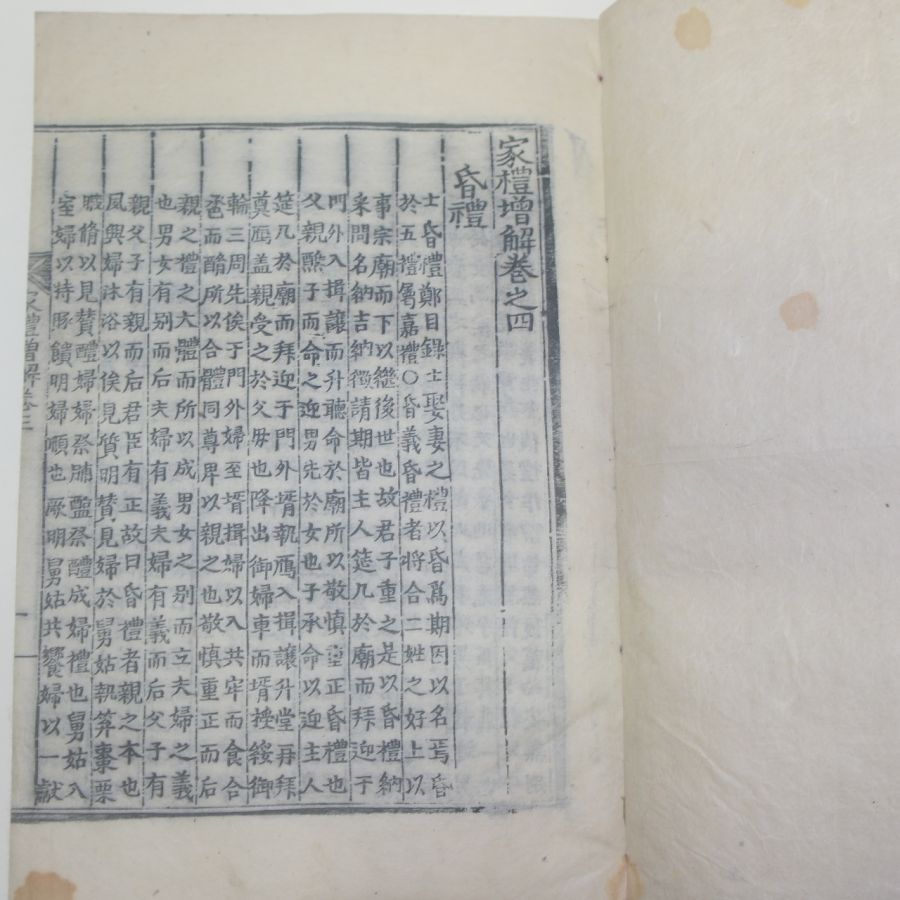 家禮增解卷之四
昏禮
士昏禮鄭目錄士娶妻之禮以昏爲期因以名焉昏
於五禮屬嘉禮○昏義昏禮者將合二姓之好上以
事宗廟而下以繼後世也故君子重之是以昏禮納
采問名納吉納徵請期皆主人筵几於廟而拜迎于
門外入揖讓而升聽命於廟所以敬慎重正昏禮也
父親醮子而命之迎男先於女也子承命以迎主人
筵几於廟而拜迎于門外壻執鴈入揖讓升堂再拜
奠鴈盖親受之於父母也降出御婦車而壻授綏御
輪三周先俟于門外婦至壻揖婦以入共牢而食合
卺而酳所以合體同尊卑以親之也敬慎重正而后
親之禮之大體而所以成男女之别而立夫婦之義
也男女有别而后夫婦有義夫婦有義而后父子有
親父子有親而后君臣有正故曰昏禮者親之本也
夙興婦沐浴以俟見質明賛見婦於舅姑執笲棗栗
腶脩以見賛醴婦婦祭脯醢祭醴成婦禮也舅姑入
室婦以特豚饋明婦順也厥明舅姑共饗婦以一献
家禮增解卷